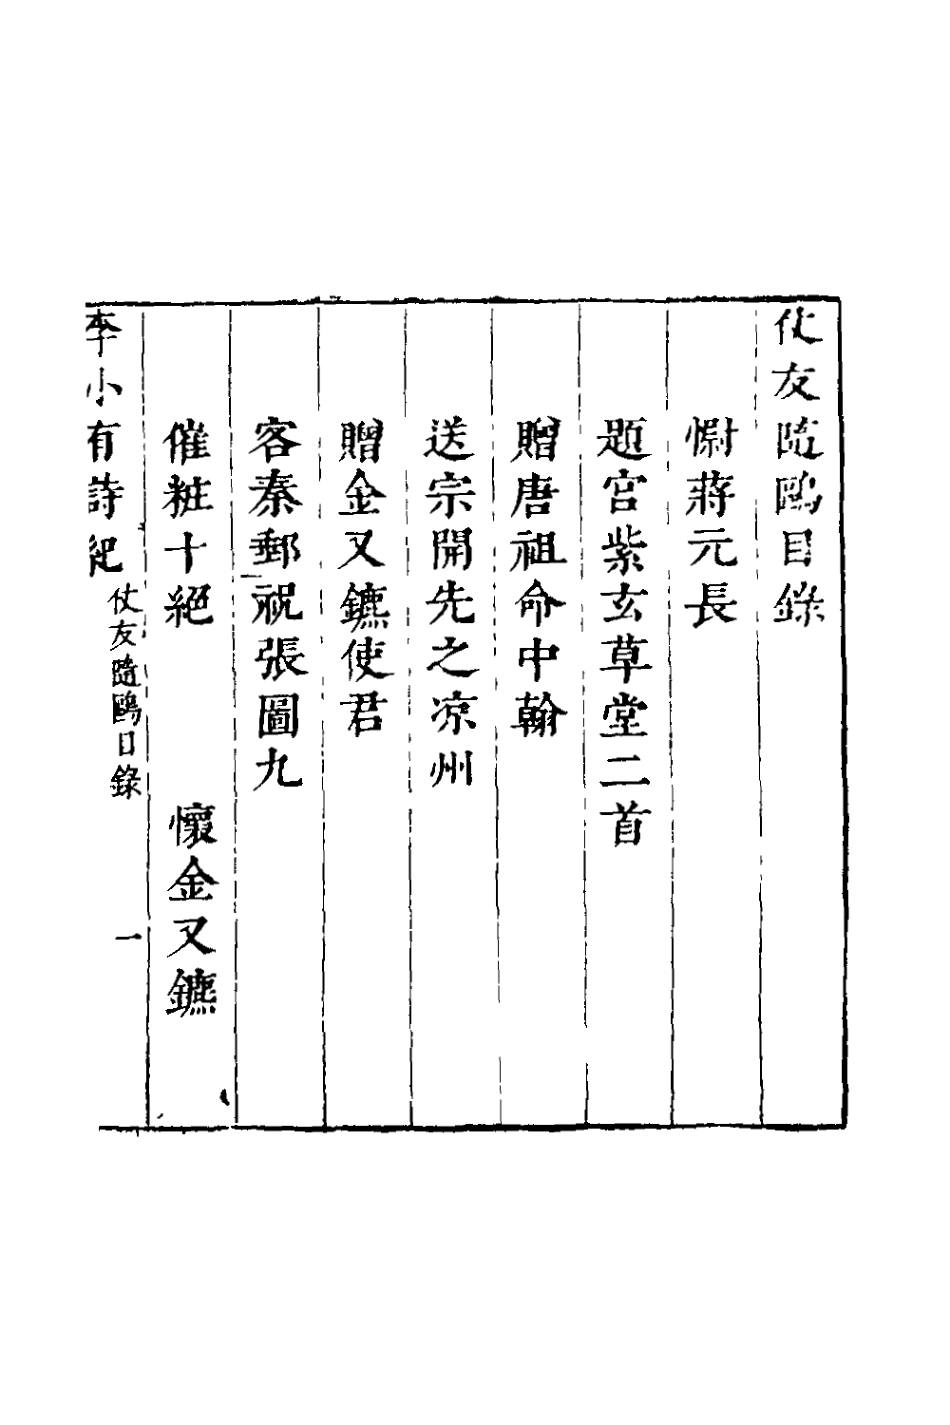 仗友隨鷗目錄
慰蔣元長
題宮紫玄草堂二首
贈唐祖命中翰
送宗開先之凉州
贈金又鑣使君
客秦郵祝張圖九
催粧十絕　懷金又鑣
李小有詩紀　仗友隨鷗目錄　一